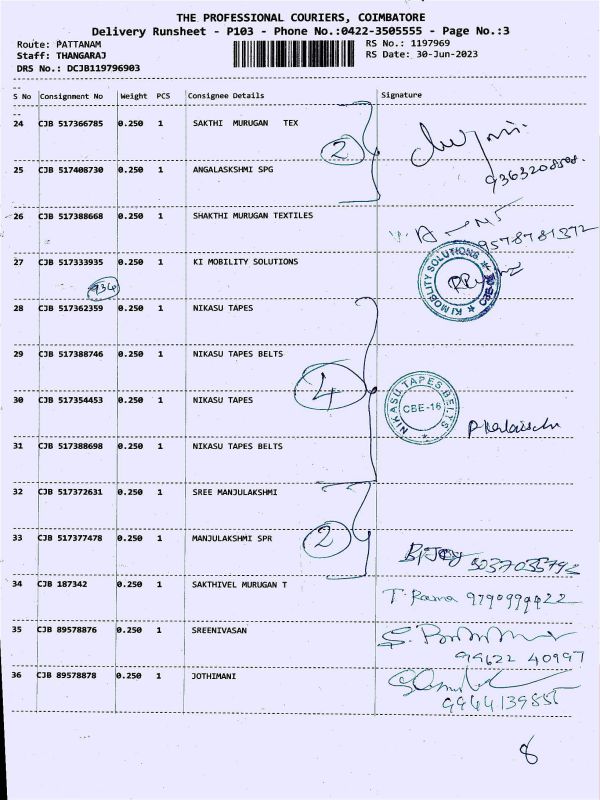 THE PROFESSIONAL COURIERS, COIMBATORE
Delivery Runsheet - P103 - Phone No.:0422-3505555 - Page No.:3
Route: PATTANAM RS No.: 1197969
Staff: THANGARAJ RS Date: 30-Jun-2023
DRS No.: DCJB119796903
S No Consignment No Weight PCS Consignee Details Signature
24 CJB 517366785 0.250 1 SAKTHI MURUGAN TEX
2
25 CJB 517408730 0.250 1 ANGALASKSHMI SPG
26 CJB 517388668 0.250 1 SHAKTHI MURUGAN TEXTILES
9578781372
27 CJB 517333935 0.250 1 KI MOBILITY SOLUTIONS
KI MOBILITY SOLUTIONS
934
28 CJB 517362359 0.250 1 NIKASU TAPES
29 CJB 517388746 0.250 1 NIKASU TAPES BELTS
4
NIKASU TAPES BELTS
CBE-16
30 CJB 517354453 0.250 1 NIKASU TAPES
31 CJB 517388698 0.250 1 NIKASU TAPES BELTS
32 CJB 517372631 0.250 1 SREE MANJULAKSHMI
2
33 CJB 517377478 0.250 1 MANJULAKSHMI SPR
34 CJB 187342 0.250 1 SAKTHIVEL MURUGAN T
T. Rama
35 CJB 89578876 0.250 1 SREENIVASAN
99622 40997
36 CJB 89578878 0.250 1 JOTHIMANI
9944139855
8